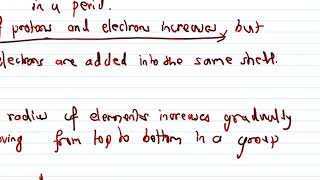 in a period.
f protons and electrons increases, but
electrons are added into the same shell.
radius of elements increases gradually
oving from top to bottom in a group